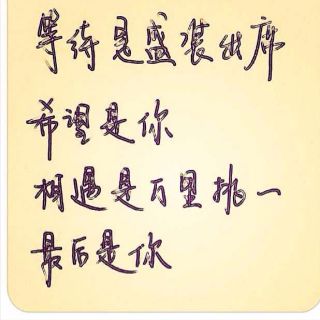 等待是盛装出席
希望是你
相遇是万里挑一
最后是你